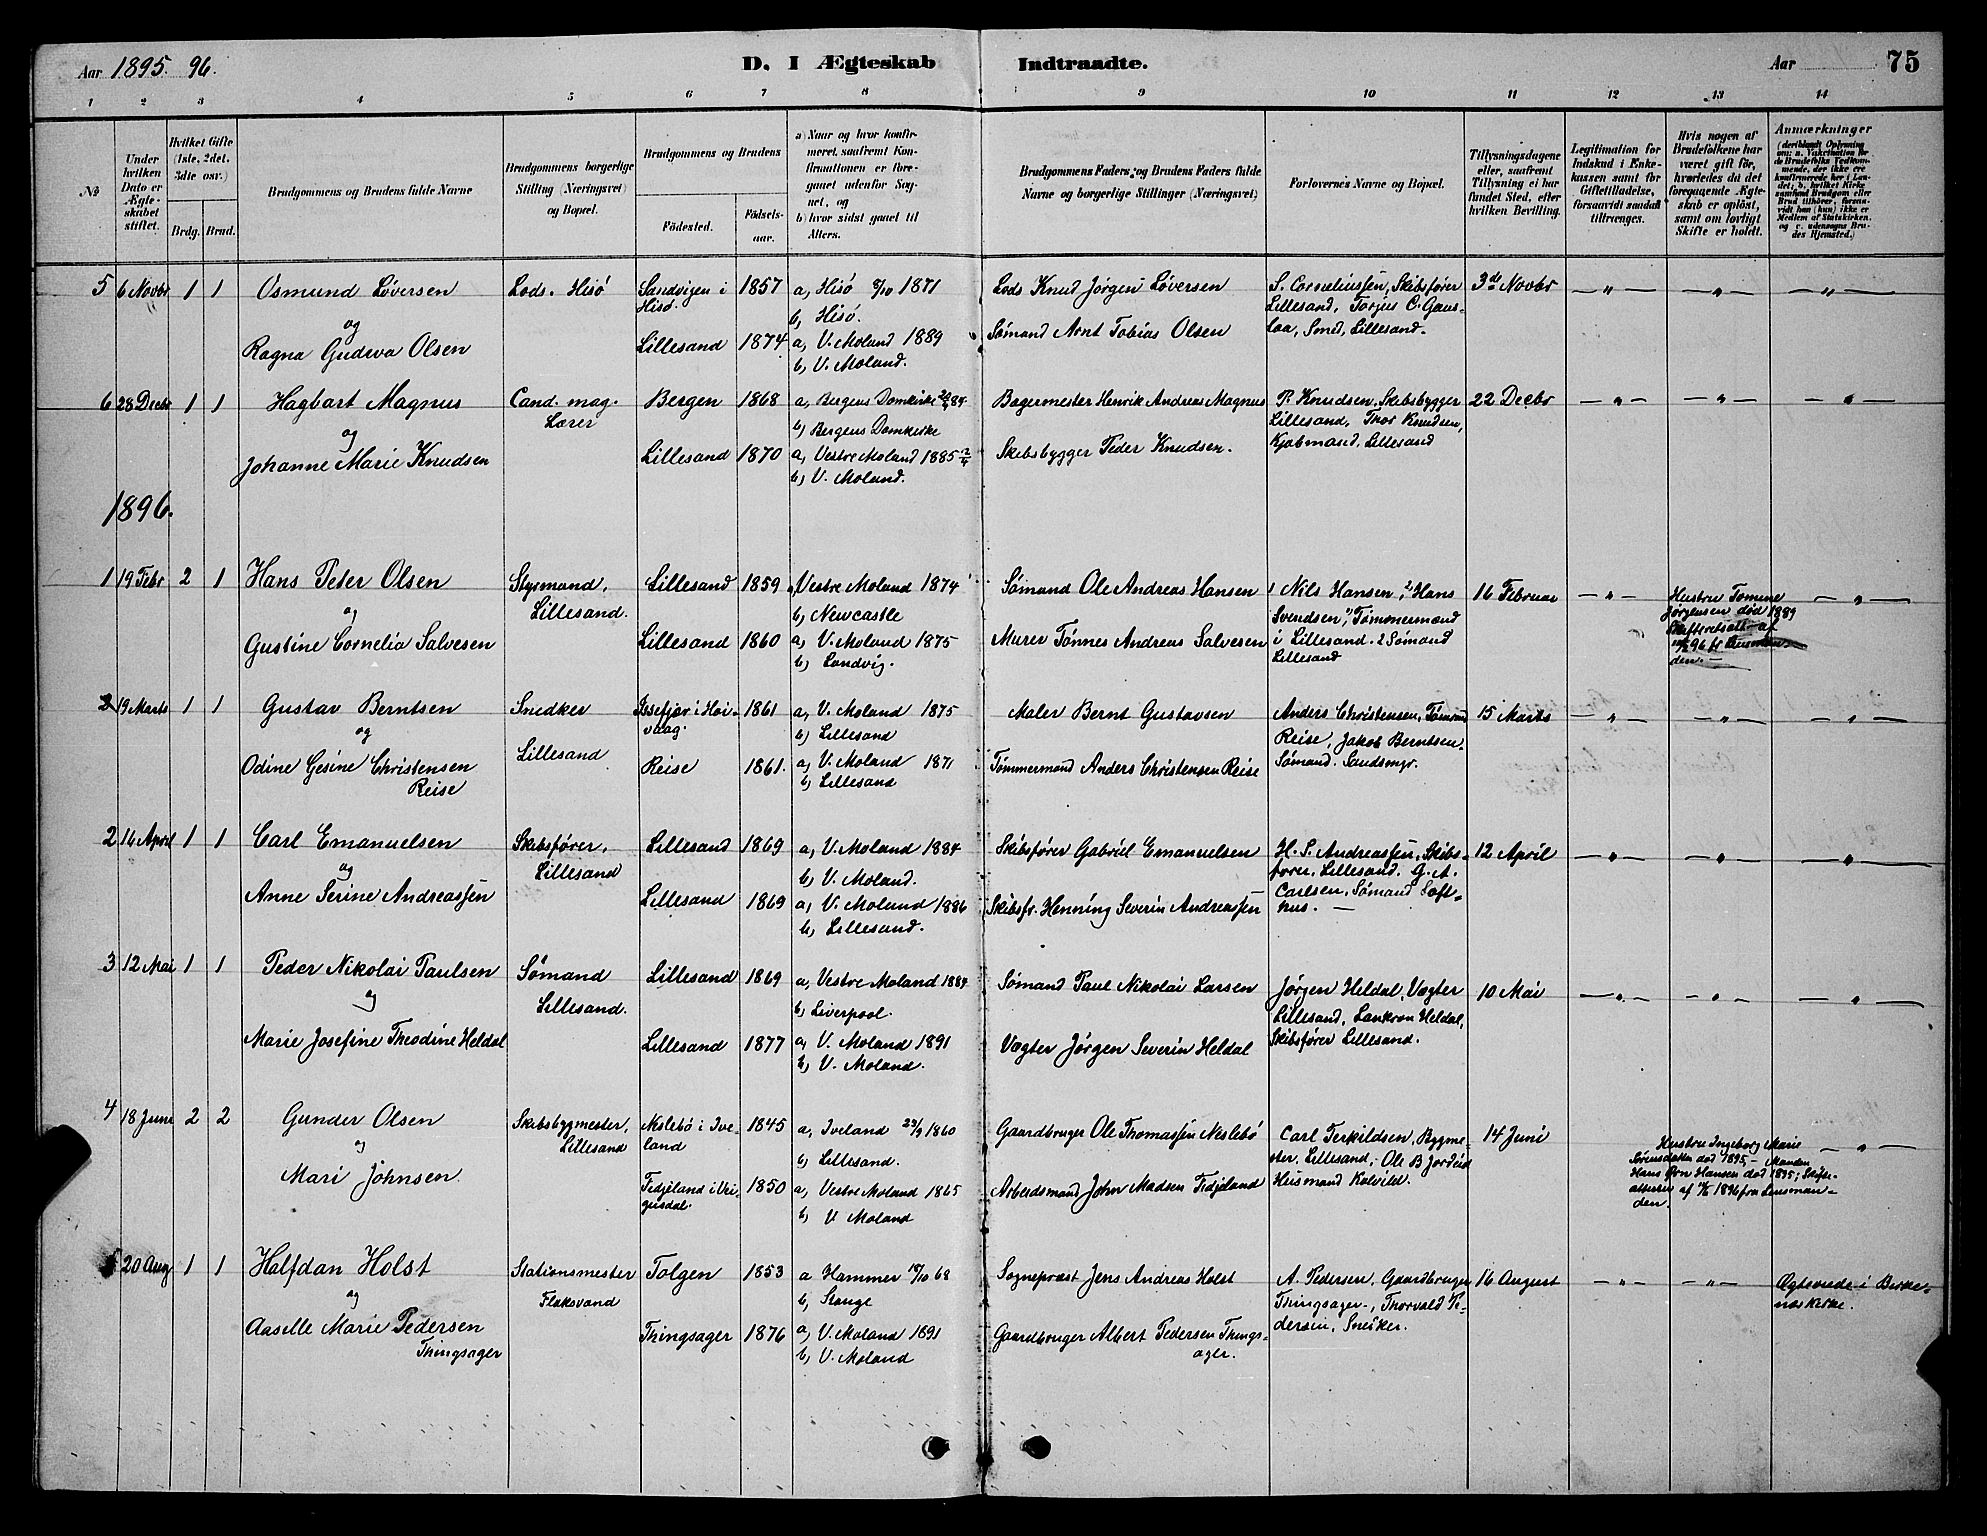 Aar 1895. 96.
D. I Ægteskab Indtraadte.
Aar 75
1 2 3 4 5 6 7 8 9 10 11 12 13 14
№
Under hvilken Dato er Ægteskabet stiftet.
Hvilket Gifte (1ste, 2det, 3die osv.)
Brdg. Brud.
Brudgommens og Brudens fulde Navne
Brudgommens borgerlige Stilling (Næringsvei) og Bopæl.
Brudgommens og Brudens
Fødested. Fødselsaar.
a) Naar og hvor konfirmeret, saafremt Konfirmationen er foregaaet udenfor Sognet, og
b) hvor sidst gaaet til Alters.
Brudgommens Faders og Brudens Faders fulde Navne og borgerlige Stillinger (Næringsvei)
Forlovernes Navne og Bopæl.
Tillysningsdagene eller, saafremt Tillysning ei har fundet Sted, efter hvilken Bevilling.
Legitimation for Indskud i Enkekassen samt for Giftetilladelse, forsaavidt saadan tiltrænges.
Hvis nogen af Brudefolkene har været gift før, hvorledes da det foregaaende Ægteskab er opløst, samt om lovligt Skifte er holdt.
Anmærkninger
5 6 Novbr 1 1 Osmund Løversen Lods. Hisö Sandvigen i Hisö. 1857 a, Hisö 8/10 1871 Lods Knud Jörgen Löversen S. Corneliussen, Skibsfører 3de Novbr
b, Hisö. Lillesand, Torjus C. Gaus-
og
Ragna Gudeva Olsen Lillesand 1874 a, V. Moland 1889 Sömand Arnt Tobias Olsen laa, Smed, Lillesand.
b, V. Moland.
6 28 Decbr 1 1 Hagbart Magnus Cand. mag. Bergen 1868 a, Bergens Domkirke 84 Bagermester Henrik Andreas Magnus P. Knudsen, Skibsbygger 22 Decbr
Lærer b) Bergens Domkirke Lillesand, Thor Knudsen,
og
Johanne Marie Knudsen Lillesand 1870 a, Vestre Moland 1885 Skibsbygger Peder Knudsen. Kjöbmand, Lillesand
b, V. Moland.
1896.
1 19 Febr 2 1 Hans Peter Olsen Styrmand, Lillesand 1859 a, Vestre Moland 1874 Sømand Ole Andreas Hansen 1 Nils Hansen, 2 Hans 16 Februar Hustru Tomine
Lillesand. b, Newcastle Svendsen, 1) Tømmermand Jørgensen död 1889
og
Gustine Cornelia Salvesen Lillesand 1860 a, V. Moland 1875 Murer Tönnes Andreas Salvesen i Lillesand. 2 Sömand Skifteretsatt. af
b, Landvig. Lillesand 96 den. —
2 19 Marts 1 1 Gustav Berntsen Snedker i Höi- 1861 a, V. Moland 1875 Maler Bernt Gustavsen Anders Christensen, Tömm 15 Marts
og vaag. b) Lillesand Reise, Jakob Berntsen.
Odine Gesine Christensen Lillesand Reise 1861. a, V. Moland 1871 Tömmermand Anders Christensen Reise Sömand. Sandsmyr.
Reise b, Lillesand
2 16 April 1 1 Carl Emanuelsen Skibsfører, Lillesand 1869 a, V. Moland 1884 Skibsförer Gabriel Emanuelsen H. S. Andreassen, Skibs- 12 April
og Lillesand b, V. Moland. förer, Lillesand. G. A.
Anne Serine Andreassen Lillesand 1869 a, V. Moland 1886 Skibsfr. Henning Severin Andreassen Carlsen, Sömand Toft-
b, Lillesand. hus. —
3 12 Mai 1 1 Peder Nikolai Paulsen Sømand Lillesand 1869 a, Vestre Moland 1884 Sømand Paul Nikolai Larsen Jørgen Heldal, Vægter 10 Mai
og Lillesand. b, Liverpool. Lillesand, Lankron Heldal,
Marie Josefine Theodine Heldal Lillesand 1877 a, V. Moland 1891 Vægter Jørgen Severin Heldal Skibsfører Lillesand.
b, V. Moland.
4 18 Juni 2 2 Gunder Olsen Skibsbygmester, Neslebö i Ive- 1845 a, Iveland 23/9 1860 Gaardbruger Ole Thomassen Neslebö Carl Terkildsen, Bygme- 14 Juni Hustru Ingeborg Marie
og Lillesand land b, Lillesand. ster, Lillesand, Ole B Jordeid Sørensdatter død 1895, — Manden
Mari Johnsen. Fidjeland i Vei- 1850 a, Vestre Moland 1865 Arbeidsmand John Madsen Fidjeland Husmand Kalvild. Hans Ørn Hansen død 1895; Skifte-
gusdal. b, V Moland attester af 1896 fra Lensman-
den.
5 20 Aug 1 1 Halfdan Holst Stationsmester Tolgen 1853 a Hammer 18/10 68 Sogneprest Jens Andreas Holst A. Pedersen, Gaardbruger 16 August Ægteviede i Birke-
og Flaksvand b, Stange Thingsager, Thorvald Pe- næs Kirke.
Aaselle Marie Pedersen Thingsager 1876 a, V. Moland 1891 Gaardbruger Albert Pedersen Things- dersen, Snedker.
Thingsager b, V. Moland ager.